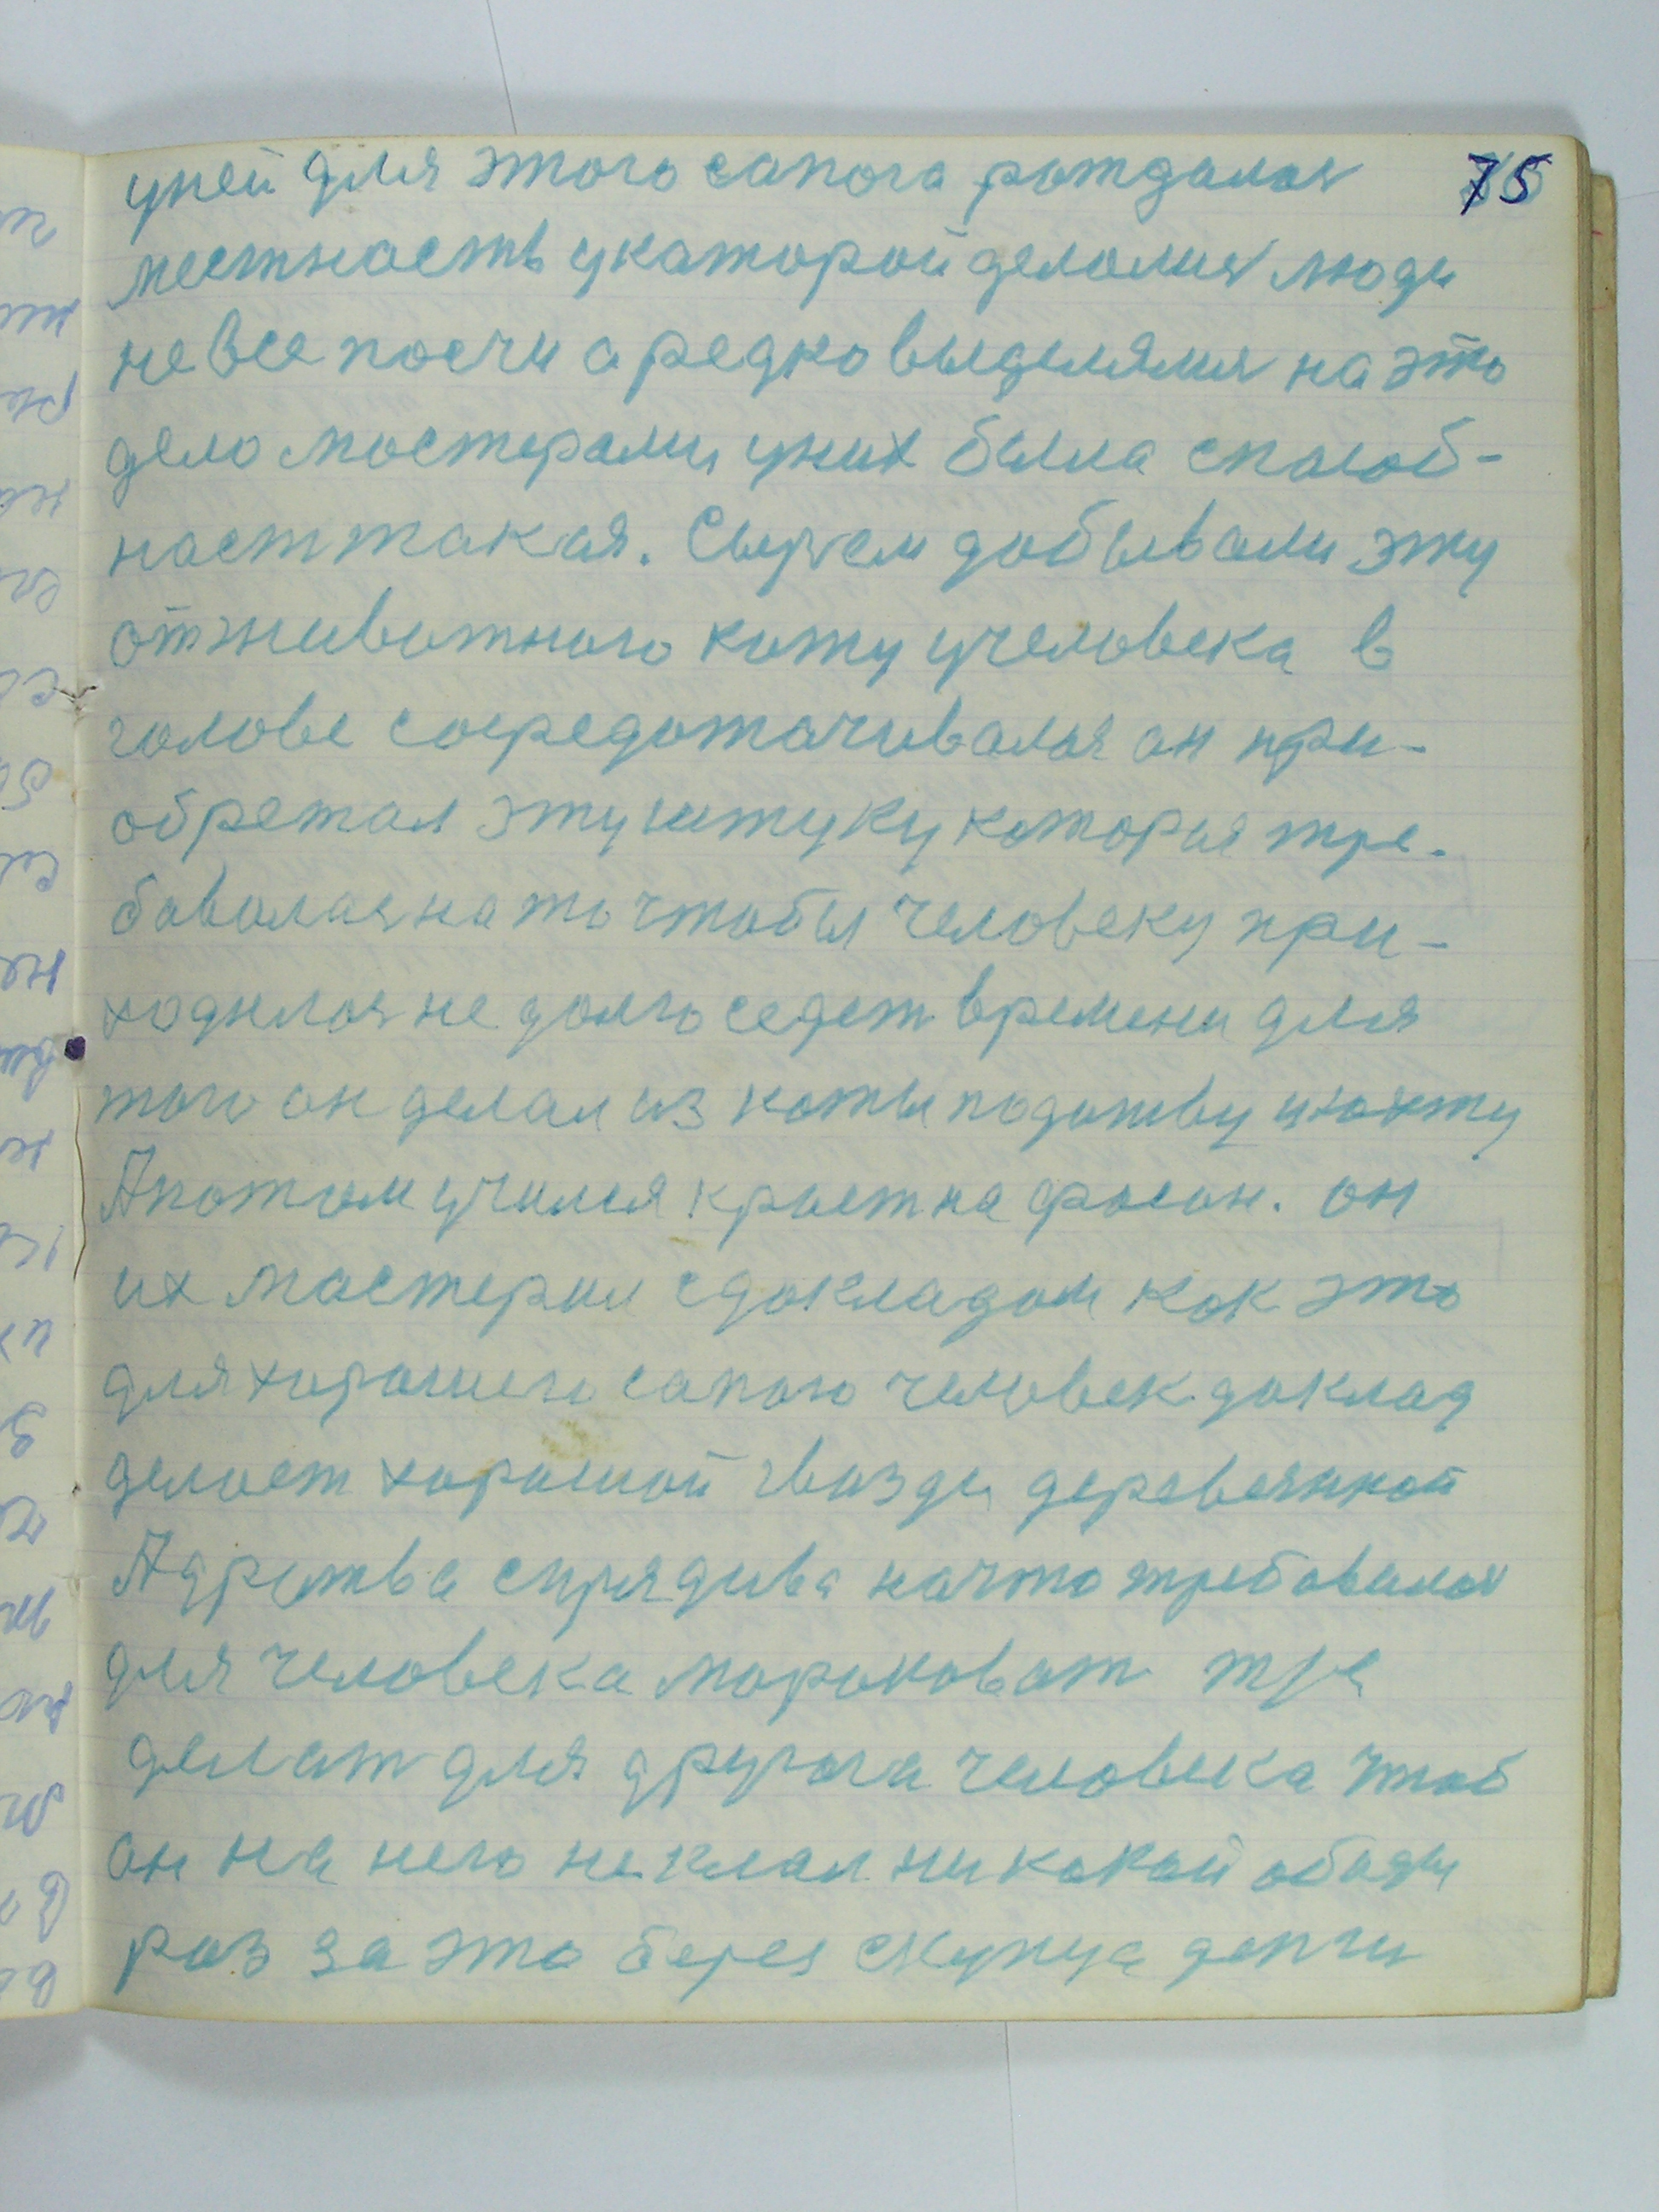 75
уней для этого сапога рождалася
местнасть укаторой делалися люди
не все посчи а редко выделялися на это
дело мостерами уних была спасоб-
наст такая. Сырем добывали эту
от животного кожу учеловека в
голове сосредотачивалася он при-
обретал эту штуку которая тре-
бавалася на то чтобы человеку при-
ходилося не долго седет времени для
того он делал из кожы подошву июхту
Апотом учился кроет на фасон. он
их мастерил сдокладом как это
для хорошего сапого человек доклад
делает хорошой гвозди деревянной
Адратва спрядива начто требовалося
для человека мороковат
делат для другога человека чтоб
он на него не клал никакой обиды
раз за это берея скупца денги